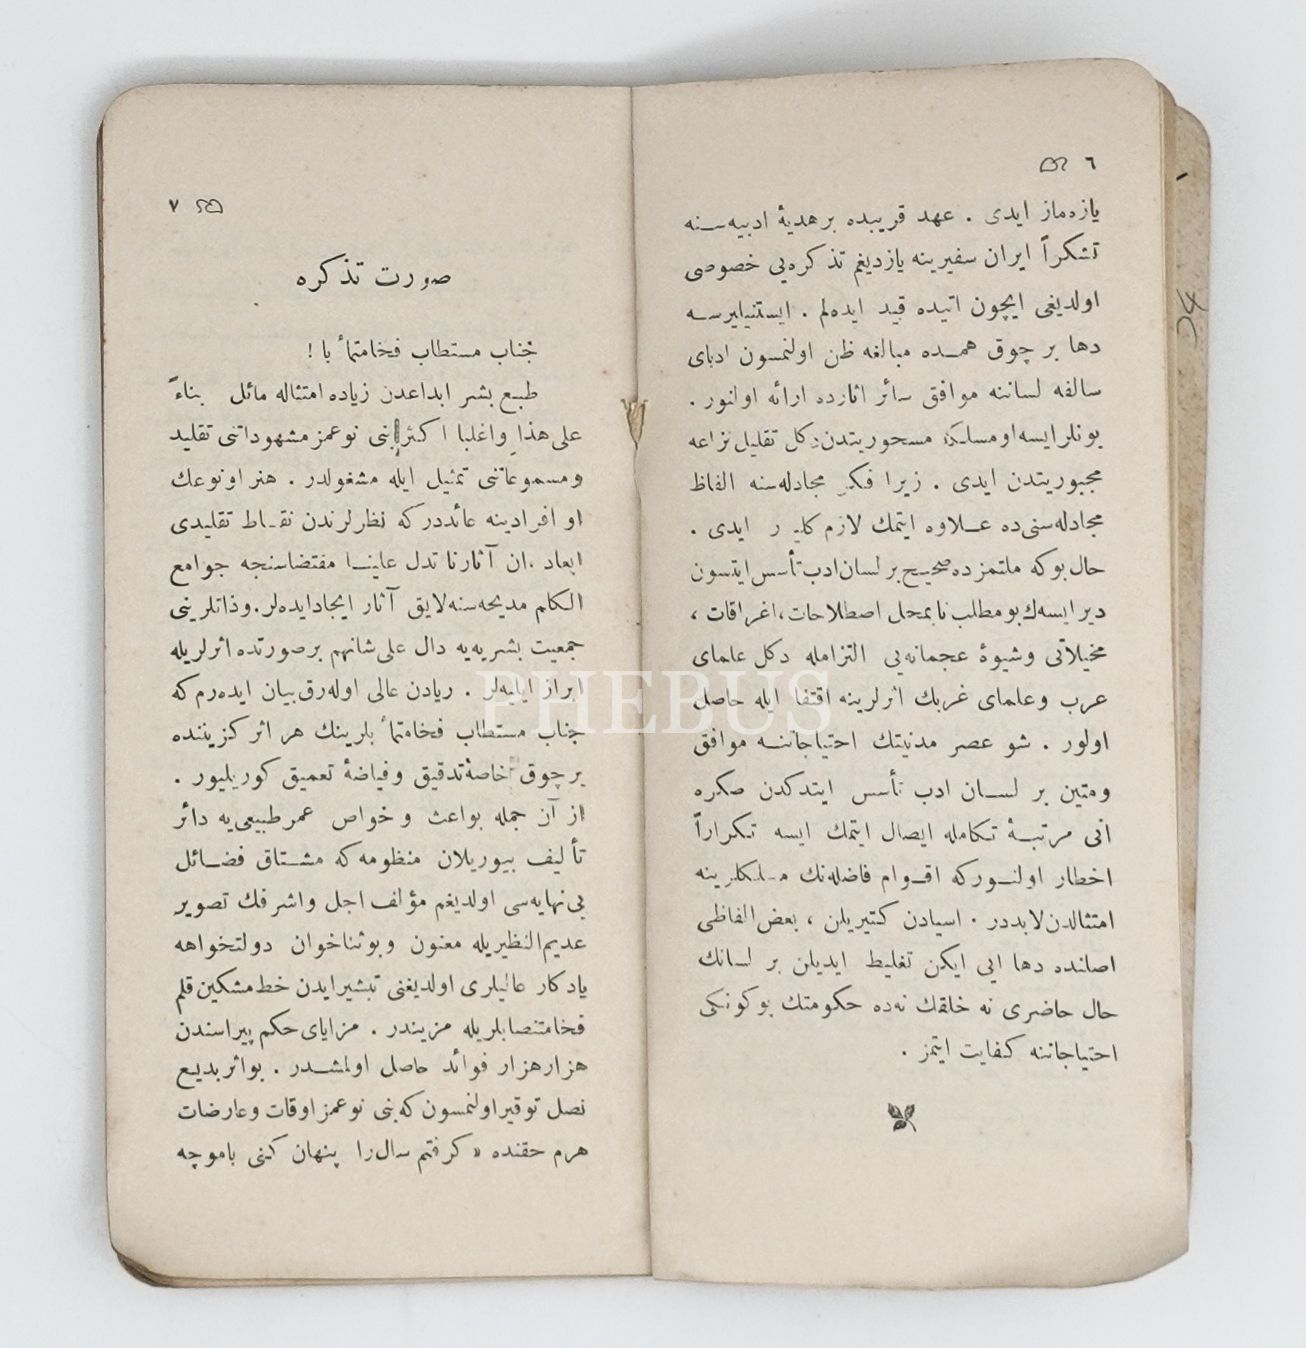 ٦
یازه‌ماز ایدی . عهد قریبده بر هدیهٔ ادبیه‌سنه
تشکراً ایران سفیرینه یازدیغم تذکره‌یی خصوصی
اولدیغی ایچون آتیده قید ایده‌لم . ایستنیلیرسه
دها بر چوق همده مبالغه ظن اولنمسون ادبای
سالفه لساننه موافق سائر آثارده ارائه اولنور .
بونلر ایسه او مسلکه مسحوریتدن دکل تقلیل نزاعه
مجبوریتدن ایدی . زیرا فکر مجادله‌سنه الفاظ
مجادله‌سنی ده علاوه ایتمك لازم کلیر ایدی .
حال بوکه ملتمزده صحیح بر لسان ادب تأسس ایتسون
دیر ایسه‌ك بو مطلب نابمحل اصطلاحات ، اغراقات ،
مخیلاتی و شیوهٔ عجمانه‌یی التزامله دکل علمای
عرب و علمای غربك اثرلرینه اقتفا ایله حاصل
اولور . شو عصر مدنیتك احتیاجاتنه موافق
ومتین بر لسان ادب تأسس ایتدکدن صکره
آنی مرتبهٔ تکامله ایصال ایتمك ایسه تکراراً
اخطار اولنورکه اقوام فاضله‌نك مسلکلرینه
امتثالدن لابددر . اسیادن کتیریلن ، بعض الفاظی
اصلنده دها ایی ایکن تغلیط ایدیلن بر لسانك
حال حاضری نه خلقك نه‌ده حکومتك بوکونکی
احتیاجاتنه کفایت ایتمز .
٧
صورت تذکره
جناب مستطاب فخامتمآبا !
طبع بشر ابداعدن زیاده امتثاله مائل بناءً
علی هذا واغلبا اکثر ابنی نوعمز مشهوداتنی تقلید
ومسموعاتنی تمثیل ایله مشغولدر . هنر او نوعك
او افرادینه عائددرکه نظرلرندن نقاط تقلیدی
ابعاد ان آثارنا تدل علینا مقتضاسنجه جوامع
الکلم مدیحه‌سنه لایق آثار ایجاد ایده‌لر . وذاتلرینی
جمعیت بشریه‌یه دال علی شانهم بر صورتده اثرلریله
ابراز ایلیه‌لر . ریادن عالی اوله‌رق بیان ایده‌رم که
جناب مستطاب فخامتمآبلرینك هر اثر کزیننده
بر چوق خاصهٔ تدقیق و فیاضهٔ تعمیق کوریلیور .
از آن جمله بواعث و خواص عمر طبیعی‌یه دائر
تألیف بیوریلان منظومه که مشتاق فضائل
بی نهایه‌سی اولدیغم مؤلف اجل واشرفك تصویر
عدیم النظیریله معنون وبو ثناخوان دولتخواهه
یادکار عالیلری اولدیغنی تبشیر ایدن خط مشکین قلم
فخامتنصابلریله مزیندر . مزایای حکم پیراسندن
هزار هزار فوائد حاصل اولمشدر . بو اثر بدیع
نصل توقیر اولنمسون که بنی نوعمز اوقات و عارضات
هرم حقنده « کرفتم سال را پنهان کنی با مو چه
PHEBUS